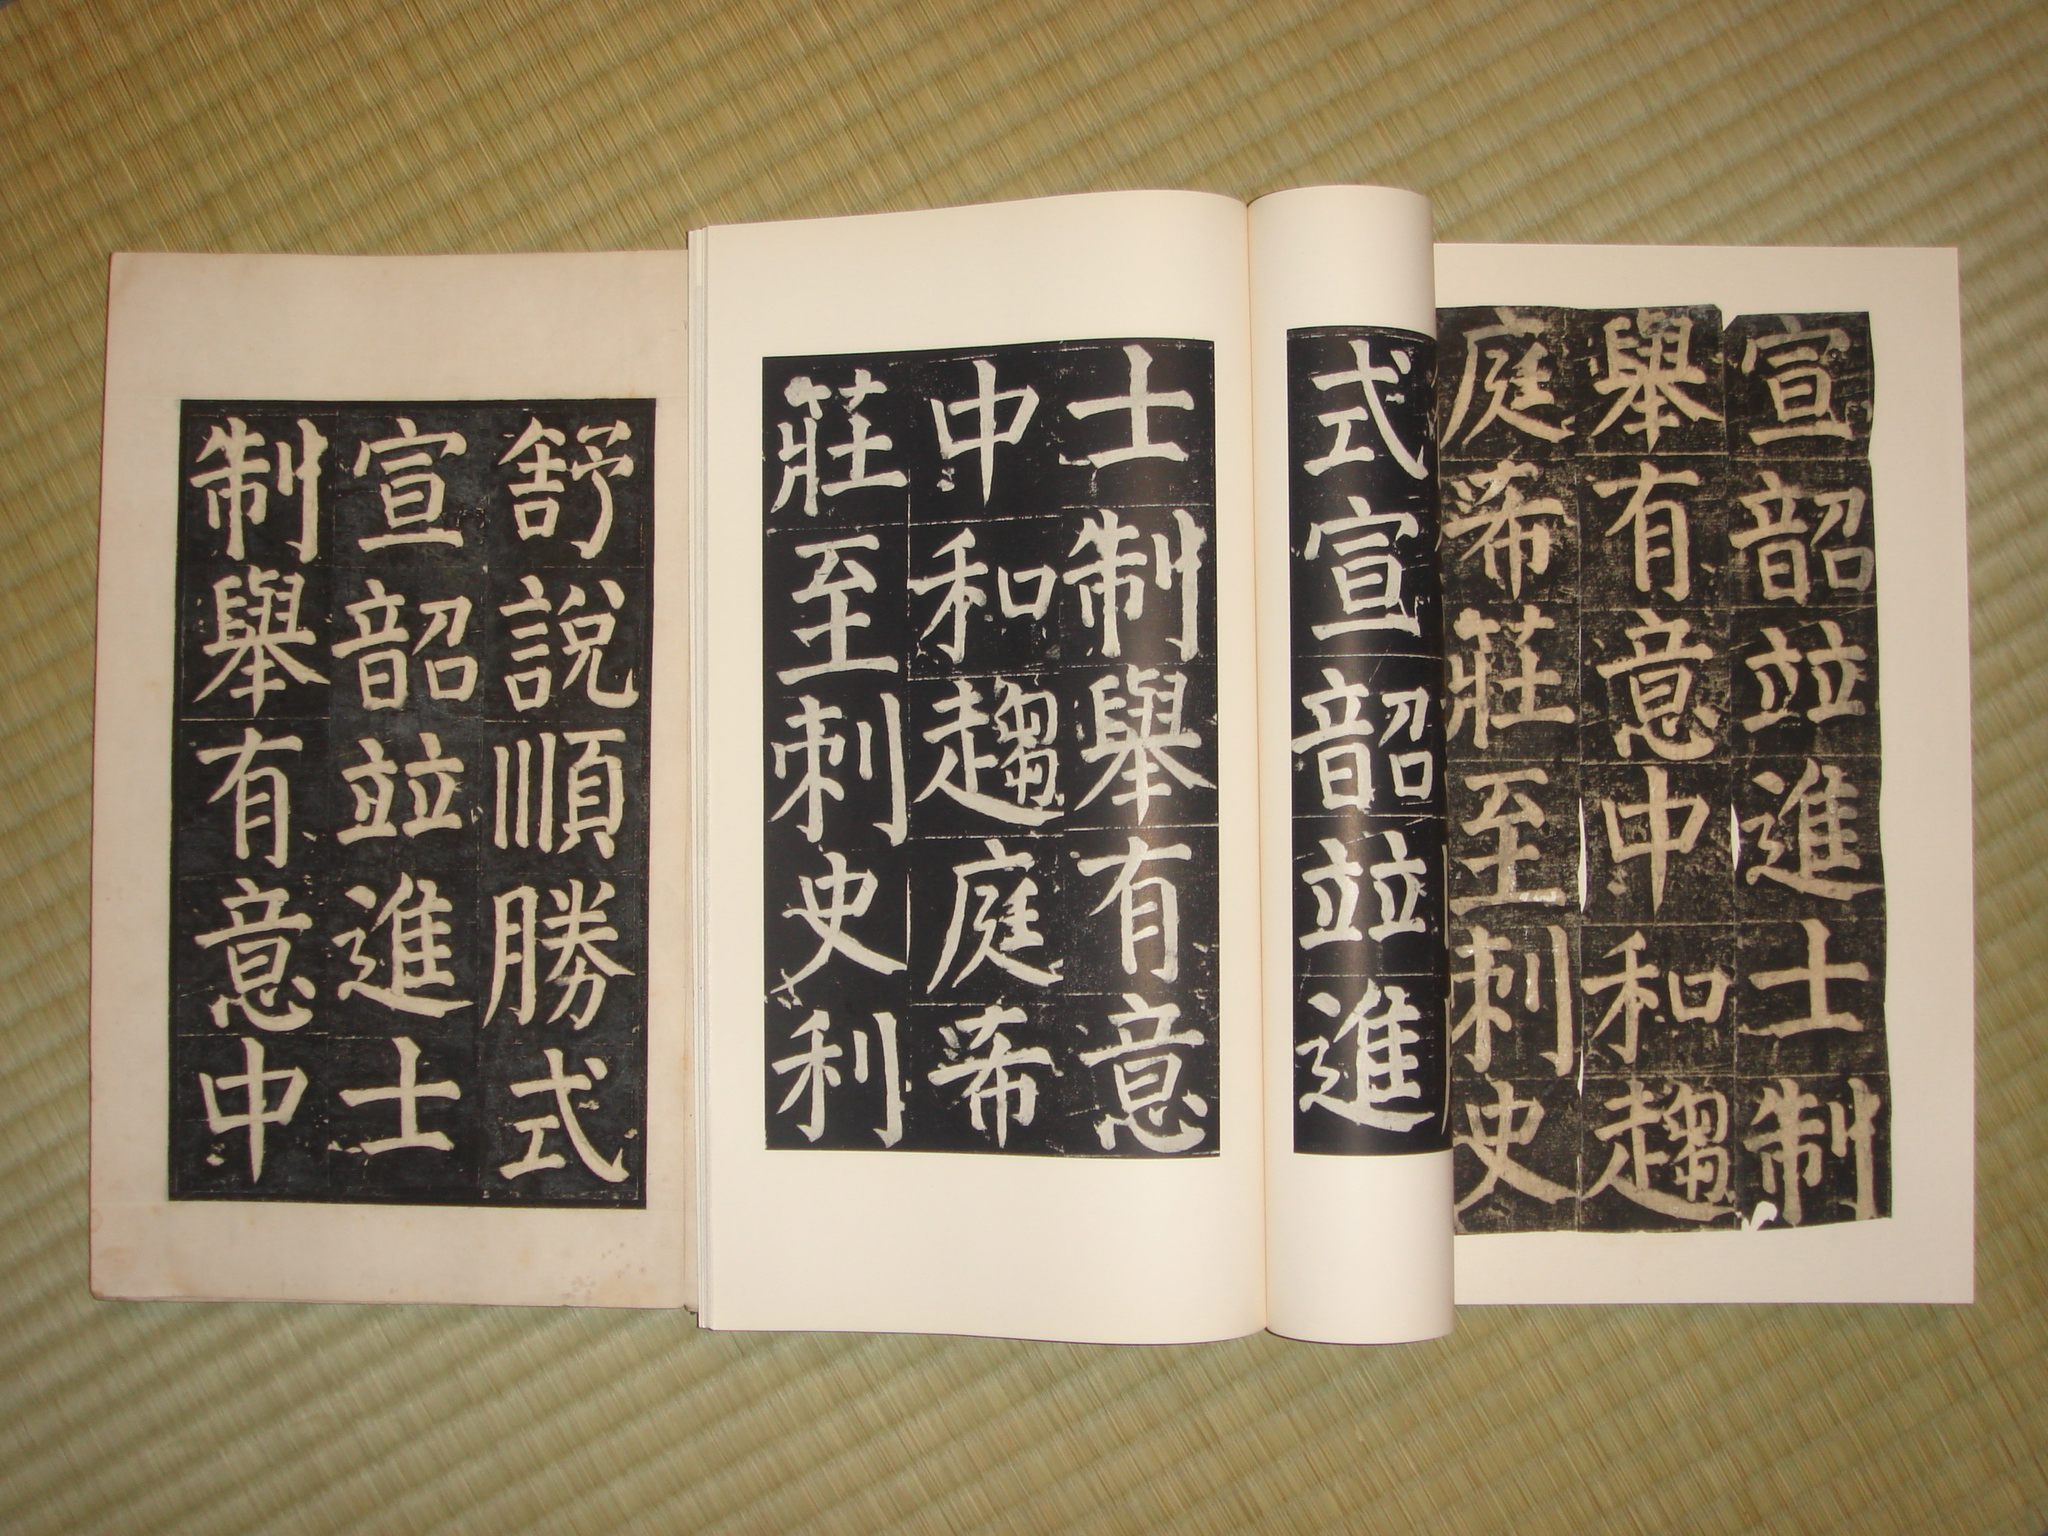 宣韶竝進士制
舉有意中和趨
庭希莊至刺史
式宣韶竝進
士制舉有意
中和趨庭希
莊至刺史利
舒說順勝式
宣韶竝進士
制舉有意中